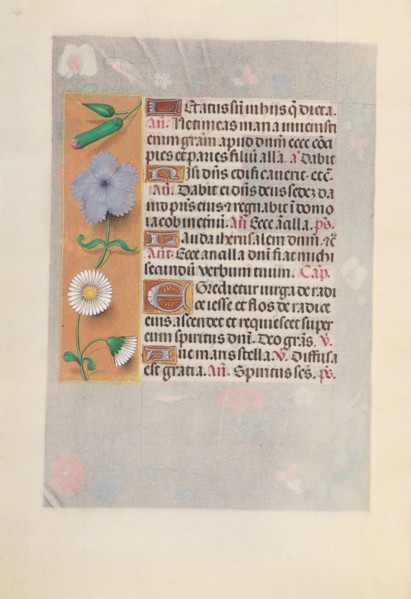 Letatus sũ in hiis q̃ dicta.
Añ. Ne timeas maria inuenisti
enim gr̃am apud dñm ecce cõci
pies et paries filiũ alla. a᷒ Dabit
Nisi dñs edificauerit. etc̃.
Añ. Dabit ei dñs deus sedẽ da
uid pris̃ eius et regnabit ĩ domo
iacob in etnũ. Añ Ecce ancilla. ps̃.
Lauda iherusalem dnm̃. ec̃
Añt. Ecce ancilla dnĩ fiat michi
secundũ verbum tuum. Cap̃.
Egredietur uirga de radi
ce iesse et flos de radice
eius ascendet et requiescet super
eum spiritus dnĩ. Deo gr̃as. V.
Aue maris stella. V. Diffusa
est gratia. Añ. Spiritus sc̃s. ps̃.